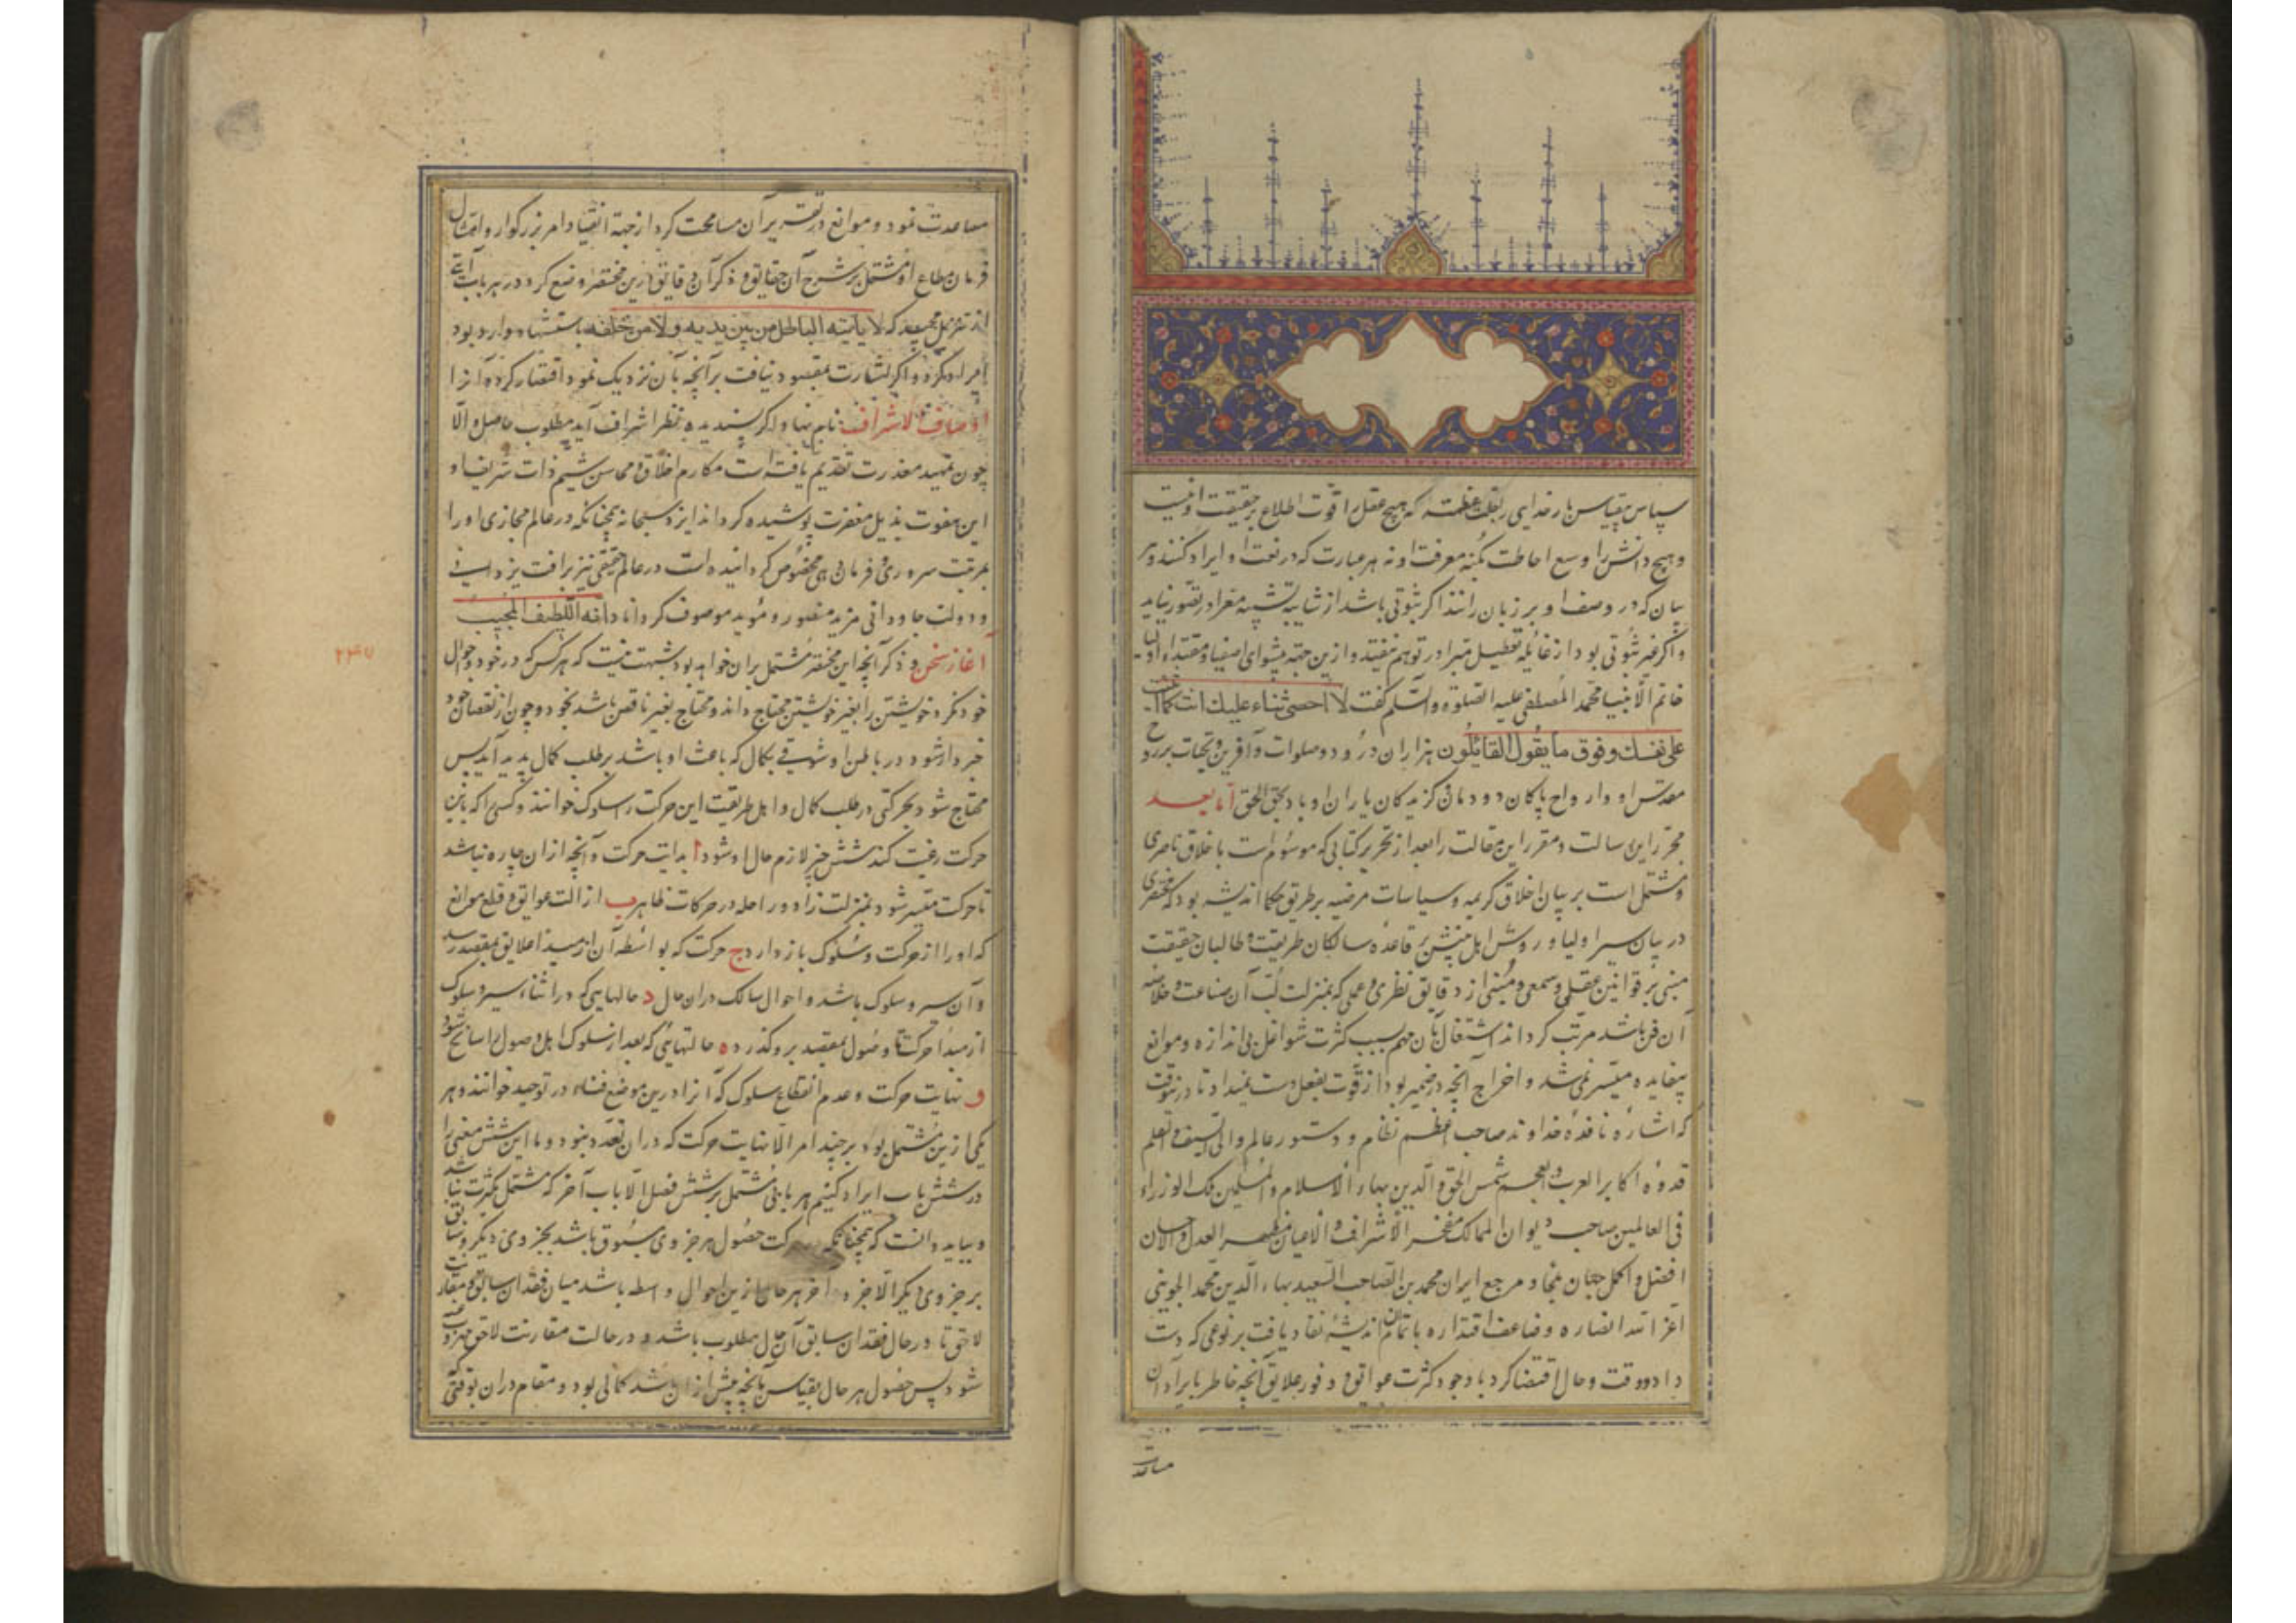 سپاس بیقیاس بارخدایی را جلت عظمته که هیچ عقل را قوت اطلاع بر حقیقت او نیست
و هیچ دانش را وسع احاطت بکنه معرفت او نه هر عبارت که در نعت او ایراد کنند و هر
بیان که در وصف او بر زبان رانند اکر ثبوتی باشد از شایبه تشبیه معرا در تصور نیاید
و اکر غیر ثبوتی بود از غایله تعطیل مبرا در توهم نیفتد و ازین جهة پیشوای اصفیا و مقتداء اولیا
خاتم الانبیا محمد المصطفی علیه الصلوة و السلم کفت لا احصی ثناء علیك انت كما اثنیت
علی نفسك و فوق ما یقول القائلون هزاران درود و صلوات و آفرین و تحیات بر روح
مقدس او و ارواح پاکان دودمان و کزیدکان یاران او باد بحق الحق اما بعد
محرر این رسالت و مقرر این مقالت را بعد از تحریر کتابی که موسوم است باخلاق ناصری
و مشتمل است بر بیان اخلاق کریمه و سیاسات مرضیه بر طریق حکما اندیشه بود که مختصری
در بیان سیر اولیا و روش اهل بینش بر قاعده سالکان طریقت و طالبان حقیقت
مبنی بر قوانین عقلی و سمعی و منبی از دقایق نظری و عملی که بمنزلت لب آن صناعت و خلاصه
آن فن باشد مرتب کرداند اشتغال بآن مهم بسبب کثرت شواغل بی اندازه و موانع
بیفایده میسر نمی شد و اخراج آنچه در ضمیر بود از قوت بفعل دست نمیداد تا درینوقت
که اشاره نافذه خداوند صاحب اعظم نظام و دستور عالم والی السیف و القلم
قدوه اکابر العرب و العجم شمس الحق و الدین بهاء الاسلام و المسلمین ملک الوزراء
فی العالمین صاحب دیوان الممالک مفخر الاشراف و الاعیان مظهر العدل و الاحسان
افضل و اکمل جهان ملجاء و مرجع ایران محمد بن الصاحب السعید بهاء الدین محمد الجوینی
اعز الله انصاره و ضاعف اقتداره باتمام آن اندیشه نفاد یافت بر نوعی که دست
داد و وقت و حال اقتضا کرد با وجود کثرت عوایق و وفور علایق آنچه خاطر بایراد آن
مساعدت
مساعدت نمود و موانع در تقریر آن مسامحت کرد از جهة انقیاد امر بزرکوار و امتثال
فرمان مطاع او مشتمل بر شرح آن حقایق و ذکر آن دقایق درین مختصر وضع کرد و در هر باب آیتی
از تنزیل مجید که لا یأتیه الباطل من بین یدیه ولا من خلفه باستشهاد وارد بود
ایراد کرد و اکر اشارت بمقصود نیافت بر آنچه بآن نزدیک نمود اقتصار کرد و آنرا
اوصاف الاشراف نام نهاد اکر پسندیده نظر اشراف آید مطلوب حاصل و الّا
چون تمهید معذرت تقدیم یافته است مکارم اخلاق و محاسن شیم ذات شریف او
این هفوت بذیل مغفرت پوشیده کرداند ایزد سبحانه همچنانکه در عالم مجازی او را
بمرتبت سروری و فرمان دهی مخصوص کردانیده است در عالم حقیقی نیز برافت یزدانی
و دولت جاودانی مزید منصور و مؤید موصوف کرداناد انه اللطیف المجیب
آغاز سخن و ذکر آنچه این مختصر مشتمل بران خواهد بود شبهت نیست که هر کس که در خود و احوال
خود نکرد خویشتن را بغیر خویشتن محتاج داند و محتاج بغیر ناقص باشد بخود و چون از نقصان خود
خبردار شود در باطن او شوقی بکمال که باعث او باشد بر طلب کمال پدید آید پس
محتاج شود بحرکتی در طلب کمال و اهل طریقت این حرکت را سلوک خوانند و کسی را که باین
حرکت رغبت کند شش چیز لازم حال او شود ا بدایت حرکت و آنچه ازان چاره نباشد
تا حرکت میسر شود بمنزلت زاد و راحله در حرکات ظاهر ب ازالت عوایق و قطع موانع
که او را از حرکت و سلوک باز دارد ج حرکت که بواسطه آن از مبدا علایق بمقصد رسد
و آن سیر و سلوک باشد و احوال سالک دران حال د حالهایی که در اثناء سیر و سلوک
از مبداء حرکت تا وصول بمقصد برو کذرد ه حالتهائی که بعد از سلوک اهل وصول را سانح شود
و نهایت حرکت و عدم انقطاع سلوک که آنرا درین موضع فنا در توحید خوانند و هر
یکی ازین مشتمل بود بر چند امر الا نهایت حرکت که دران تعدد نبود و ما این شش معنی را
در شش باب ایراد کنیم هر بابی مشتمل بر شش فصل الا باب آخر که مشتمل بکثرت نباشد
و بباید دانست که همچنانکه در حرکت حصول هر جزوی مسبوق باشد بجزوی دیکر و سابق
بر جزوی دیکر الا جزو اخر هر حال ازین احوال واسطه باشد میان فقدان سابق و مقارنت
لاحق تا در حال فقدان سابق آن حال مطلوب باشد و در حالت مقارنت لاحق مهروب عنه
شود پس حصول هر حال بقیاس بآنچه پیش ازان باشد کمالی بود و مقام دران بوقتی که
۲۴۷